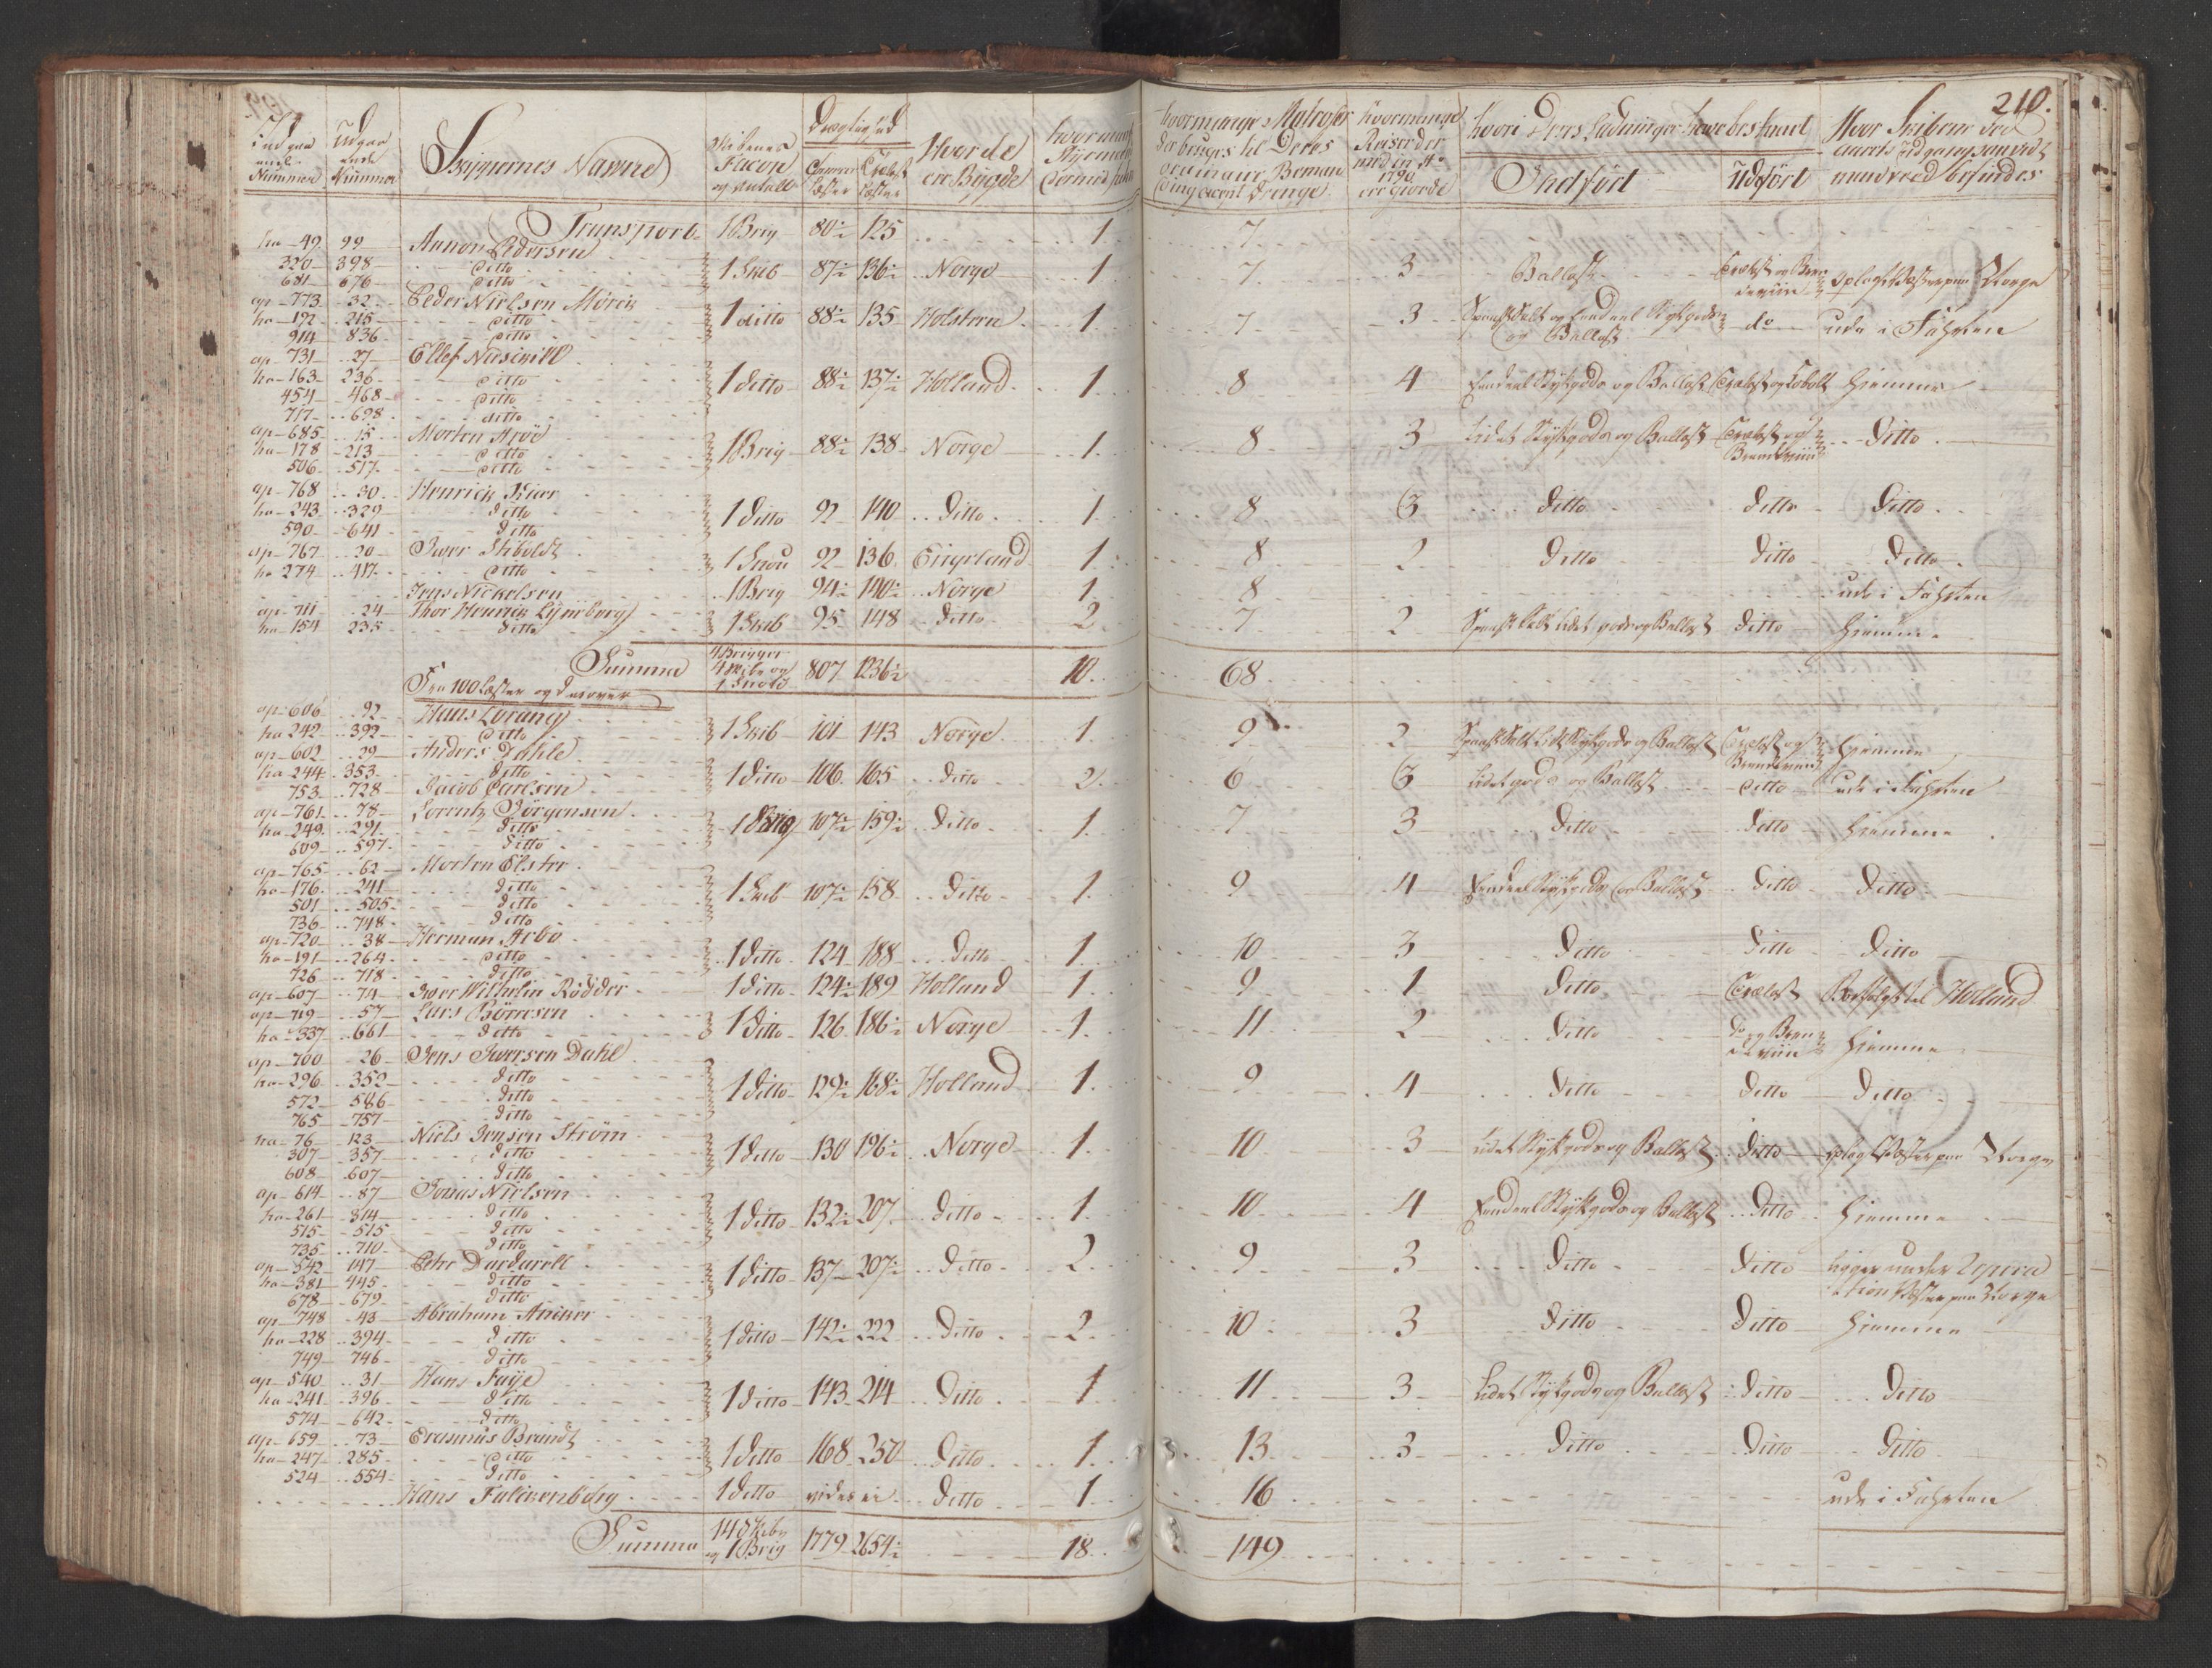 210.
Indgaaende Nummer
Udgaaende Nummer
Skippernes Navne
Skibenes Facon og Antall
Drægtighed
Commerce Læster
Trælast Læster
Hvor de ere Bygde
hvor mange Styrmænd
hvor mange Matroser der bruges til Deres ordinaire Beman ding exept Drenge
hvormange Reiser der med en Ao 1790 ere giorde
hvori Deres Ladninger have bestaaet
Indført
Udført
Hvor Skibene ved aarets Udgang
Transport 1 Brig 80½ 125 1 7
ha 49 99 Aanon Pedersen
320 398 ditto 1 Skib 87½ 136½ Norge 1 7 3 Ballast Trælast og Bren devin oplagt Væster paa Norge
681 676 ditto
ap 773 32 Peder Nielsen Mörch
ha 192 215 ditto 1 ditto 88½ 135 Holsteen 1 7 3 Spansk Salt og Eendeel Stykgods og Ballast do ude i Fahrten
914 836 ditto
ap 731 27 Ellef
ha 163 236 ditto 1 ditto 88½ 137½ Holland 1 8 4 Eendeel Stykgods og Ballast Trælast og Cobolt hiemme
454 468 ditto
717 698 ditto
ap 685 15 Morten Aröe
ha 178 213 ditto 1 Brig 88½ 138 Norge 1 8 3 Lidet Stykgods og Ballast Trælast og Brændeviin Ditto
506 517 ditto
ap 768 30 Henrich Kier
ha 243 329 ditto 1 Ditto 92 140 Ditto 1 8 3 Ditto Ditto Ditto
590 641 ditto
ap 767 20 Iver Stiboldt
ha 274 417 ditto 1 Snou 92 136 Engeland 1 8 2 Ditto Ditto Ditto
Jens Nickelsen 1 Brig 94½ 140½ Norge 1 8 ude i Fahrten
ap 711 24 Thor Henrich Lyneborg
ha 154 235 ditto 1 Skib 95 148 Ditto 2 7 2 Spansk Salt lidet gods og Ballast Ditto hiemme
Summa 4 Brigger 4 Skibe og 1 Snold 807 1236½ 10 68
Fra 100 Læster og Derover
ap 606 92 Hans Lorang
ha 242 392 ditto 1 Skib 101 143 Norge 1 9 2 Spansk Salt Lidt Stykgods og Ballast Trælast og Brændeviin hiemme
ap 602 29 Anders Dahle
ha 244 353 ditto 1 ditto 106 165 Ditto 2 6 3 Lidet gods og Ballast Ditto ude i Fahrten
753 728 Jacob Carlsen
ap 761 78 Lorentz Jörgensen
ha 249 291 ditto 1 Brig 107½ 159½ Ditto 1 7 3 Ditto Ditto hiemme
609 597 ditto
ap 765 62 Morten Elster
ha 176 241 ditto 1 Skib 107½ 158 Ditto 1 9 4 Eendeel Stykgods og Ballast Ditto Ditto
501 505 ditto
736 748 ditto
ap 720 38 Herman Arbo
ha 191 264 ditto 1 ditto 124 188 Ditto 1 10 3 Ditto Ditto Ditto
726 718 ditto
ap 607 74 Iver Wilhelm Rödder 1 ditto 124½ 189 Holland 1 9 1 Ditto Trælast Bortsolgt til Holland
ap 719 57 Lars Börresen
ha 337 661 ditto 1 Ditto 126 186½ Norge 1 11 2 Ditto Do og Bren deviin hiemme
ap 700 26 Jens Iversen Dahl
ha 296 352 ditto 1 Ditto 129½ 168½ Holland 1 9 4 Ditto Ditto Ditto
572 586 ditto
765 757 ditto
ha 76 123 Niels Jensen Ström
307 357 ditto 1 ditto 130 196½ Norge 1 10 3 Lidet Stykgods og Ballast Ditto oplagt Væster paa Norge
608 607 ditto
ap 614 87 Jonas Nielsen
ha 261 314 ditto 1 Ditto 132½ 207 ditto 1 10 4 Eendeel Stykgods og Ballast Ditto hiemme
515 515 ditto
735 710 ditto
ap 542 147 Peter Dardarell
ha 381 445 ditto 1 ditto 137 207½ Ditto 2 9 3 Ditto Ditto ligger under Repara tion Væster paa Norge
678 679 ditto
ap 748 43 Abraham Ancker
ha 228 394 ditto 1 ditto 142½ 222 Ditto 2 10 3 Ditto Ditto hiemme
749 746 ditto
ap 540 31 Hans Faye
ha 241 396 ditto 1 ditto 143 214 Ditto 1 11 3 Lidet Stykgods og Ballast Ditto Ditto
574 642 ditto
ap 659 73 Erasmus Brandt
ha 247 285 ditto 1 ditto 168 250 Ditto 1 13 3 Ditto Ditto Ditto
524 554 ditto
Hans Falckenberg 1 ditto vides ei Ditto 1 16 ude i Fahrten
Summa 14 Skibe og 1 Brig 1779 2654½ 18 149